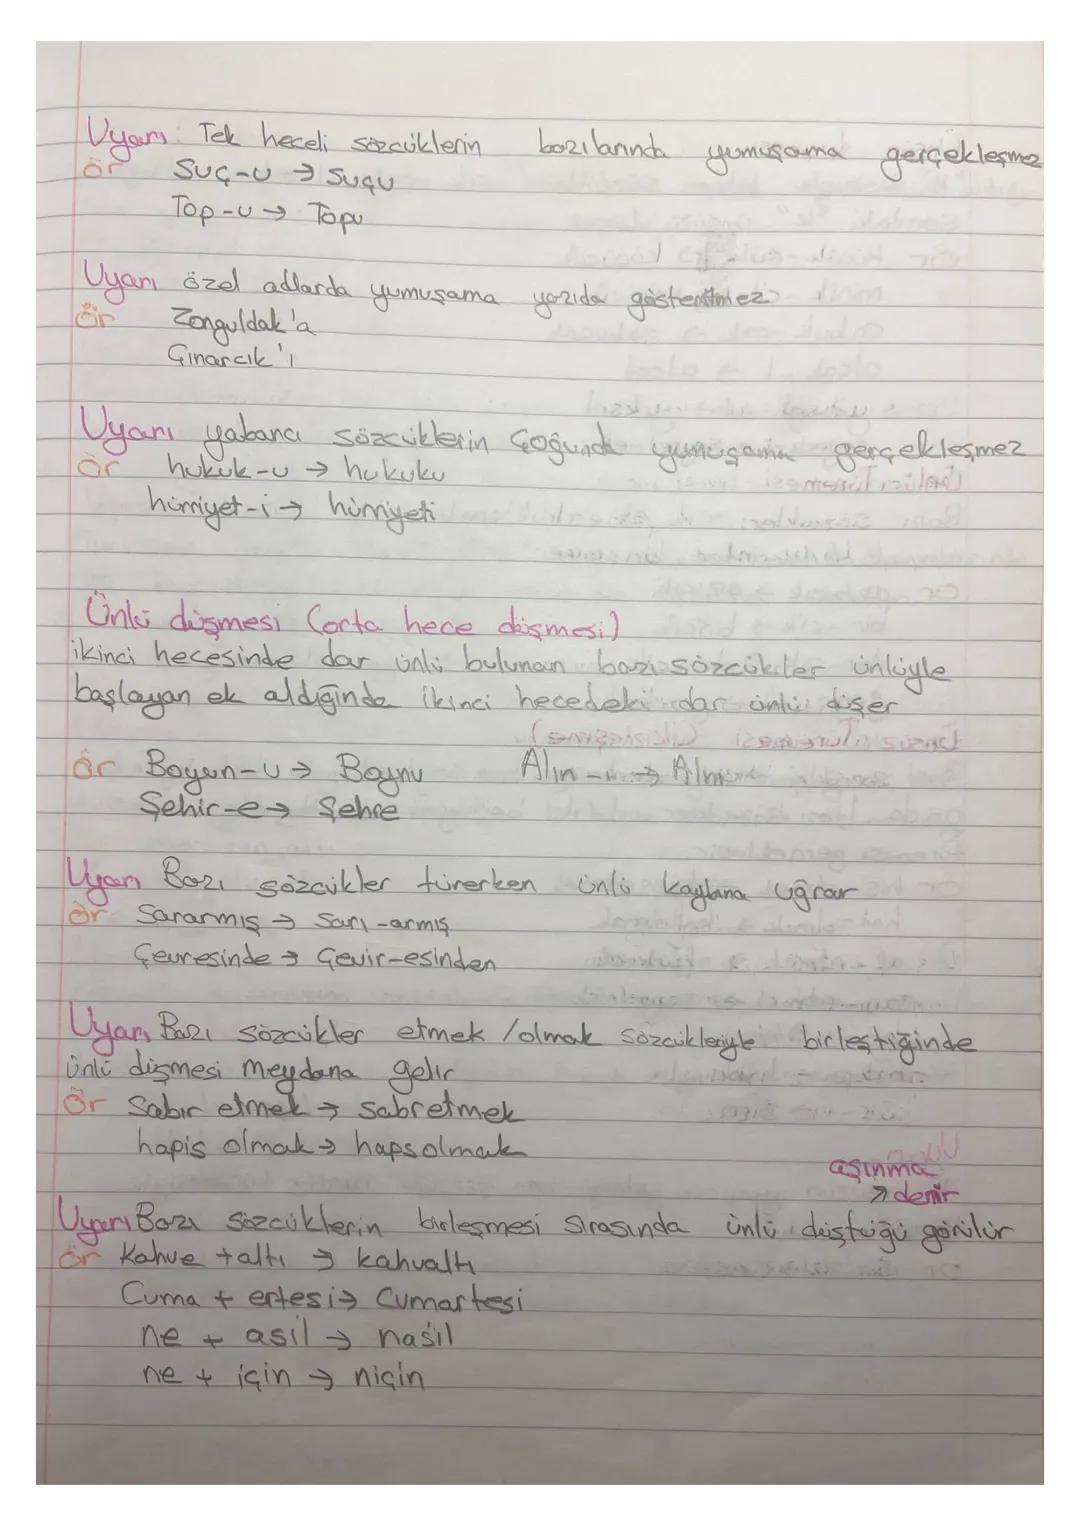 Uyarı: Tek heceli sözcüklerin bazılarında yumuşama gerçekleşmez
ör Suç-u → Suçu
Top-u → Topu
Uyarı özel adlarda yumuşama yazıda gösterilmez
ör Zonguldak'a
Çınarcık'ı
Uyarı yabancı sözcüklerin çoğunda yumuşama gerçekleşmez
ör hukuk-u → hukuku
hürriyet-i → hürriyeti
Ünlü düşmesi (orta hece düşmesi)
ikinci hecesinde dar ünlü bulunan bazı sözcükler ünlüyle
başlayan ek aldığında ikinci hecedeki dar ünlü düşer
ör Boyun-u → Boynu Alın → Alnı
Şehir-e → Şehre
Uyarı Bazı sözcükler türerken ünlü kaybına uğrar
ör Sararmış → Sarı-armış
Çevresinde → Çevir-esinden
Uyarı Bazı sözcükler etmek /olmak sözcükleriyle birleştiğinde
ünlü düşmesi meydana gelir
ör Sabır etmek → sabretmek
hapis olmak → hapsolmak
aşınma
→ denir
Uyarı Bazı sözcüklerin birleşmesi sırasında ünlü düştüğü görülür
ör Kahve + altı → kahvaltı
Cuma + ertesi → Cumartesi
ne + asıl → nasıl
ne + için → niçin